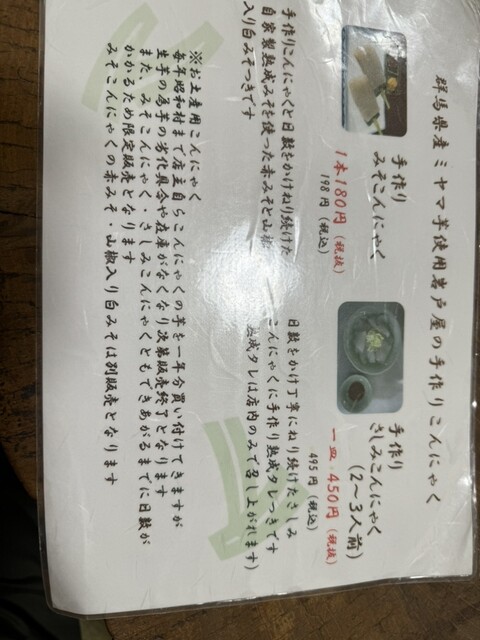 群馬県産ミヤマ芋使用岩戸屋の手作りこんにゃく
手作り
みそこんにゃく
1本180円（税抜）
198円（税込）
手作りこんにゃくと日数をかけねり続けた
自家製熟成みそを使った赤みそと山椒
入り白みそつきです
手作り
さしみこんにゃく
（2～3人前）
一皿.450円（税抜）
495円（税込）
日数をかけ丁寧にねり続けたさしみ
こんにゃくに手作り熟成タレつきです
熟成タレは店内のみで召し上がれます）
※お土産用こんにゃく
毎年昭和村まで店主自らこんにゃくの芋を一年分買い付けてきますが
生芋の為芋の劣化具合や在庫がなくなり次第販売終了となります
また、みそこんにゃく・さしみこんにゃくともできあがるまでに日数が
かかるため限定販売となります
みそこんにゃくの赤みそ・山椒入り白みそは別販売となります